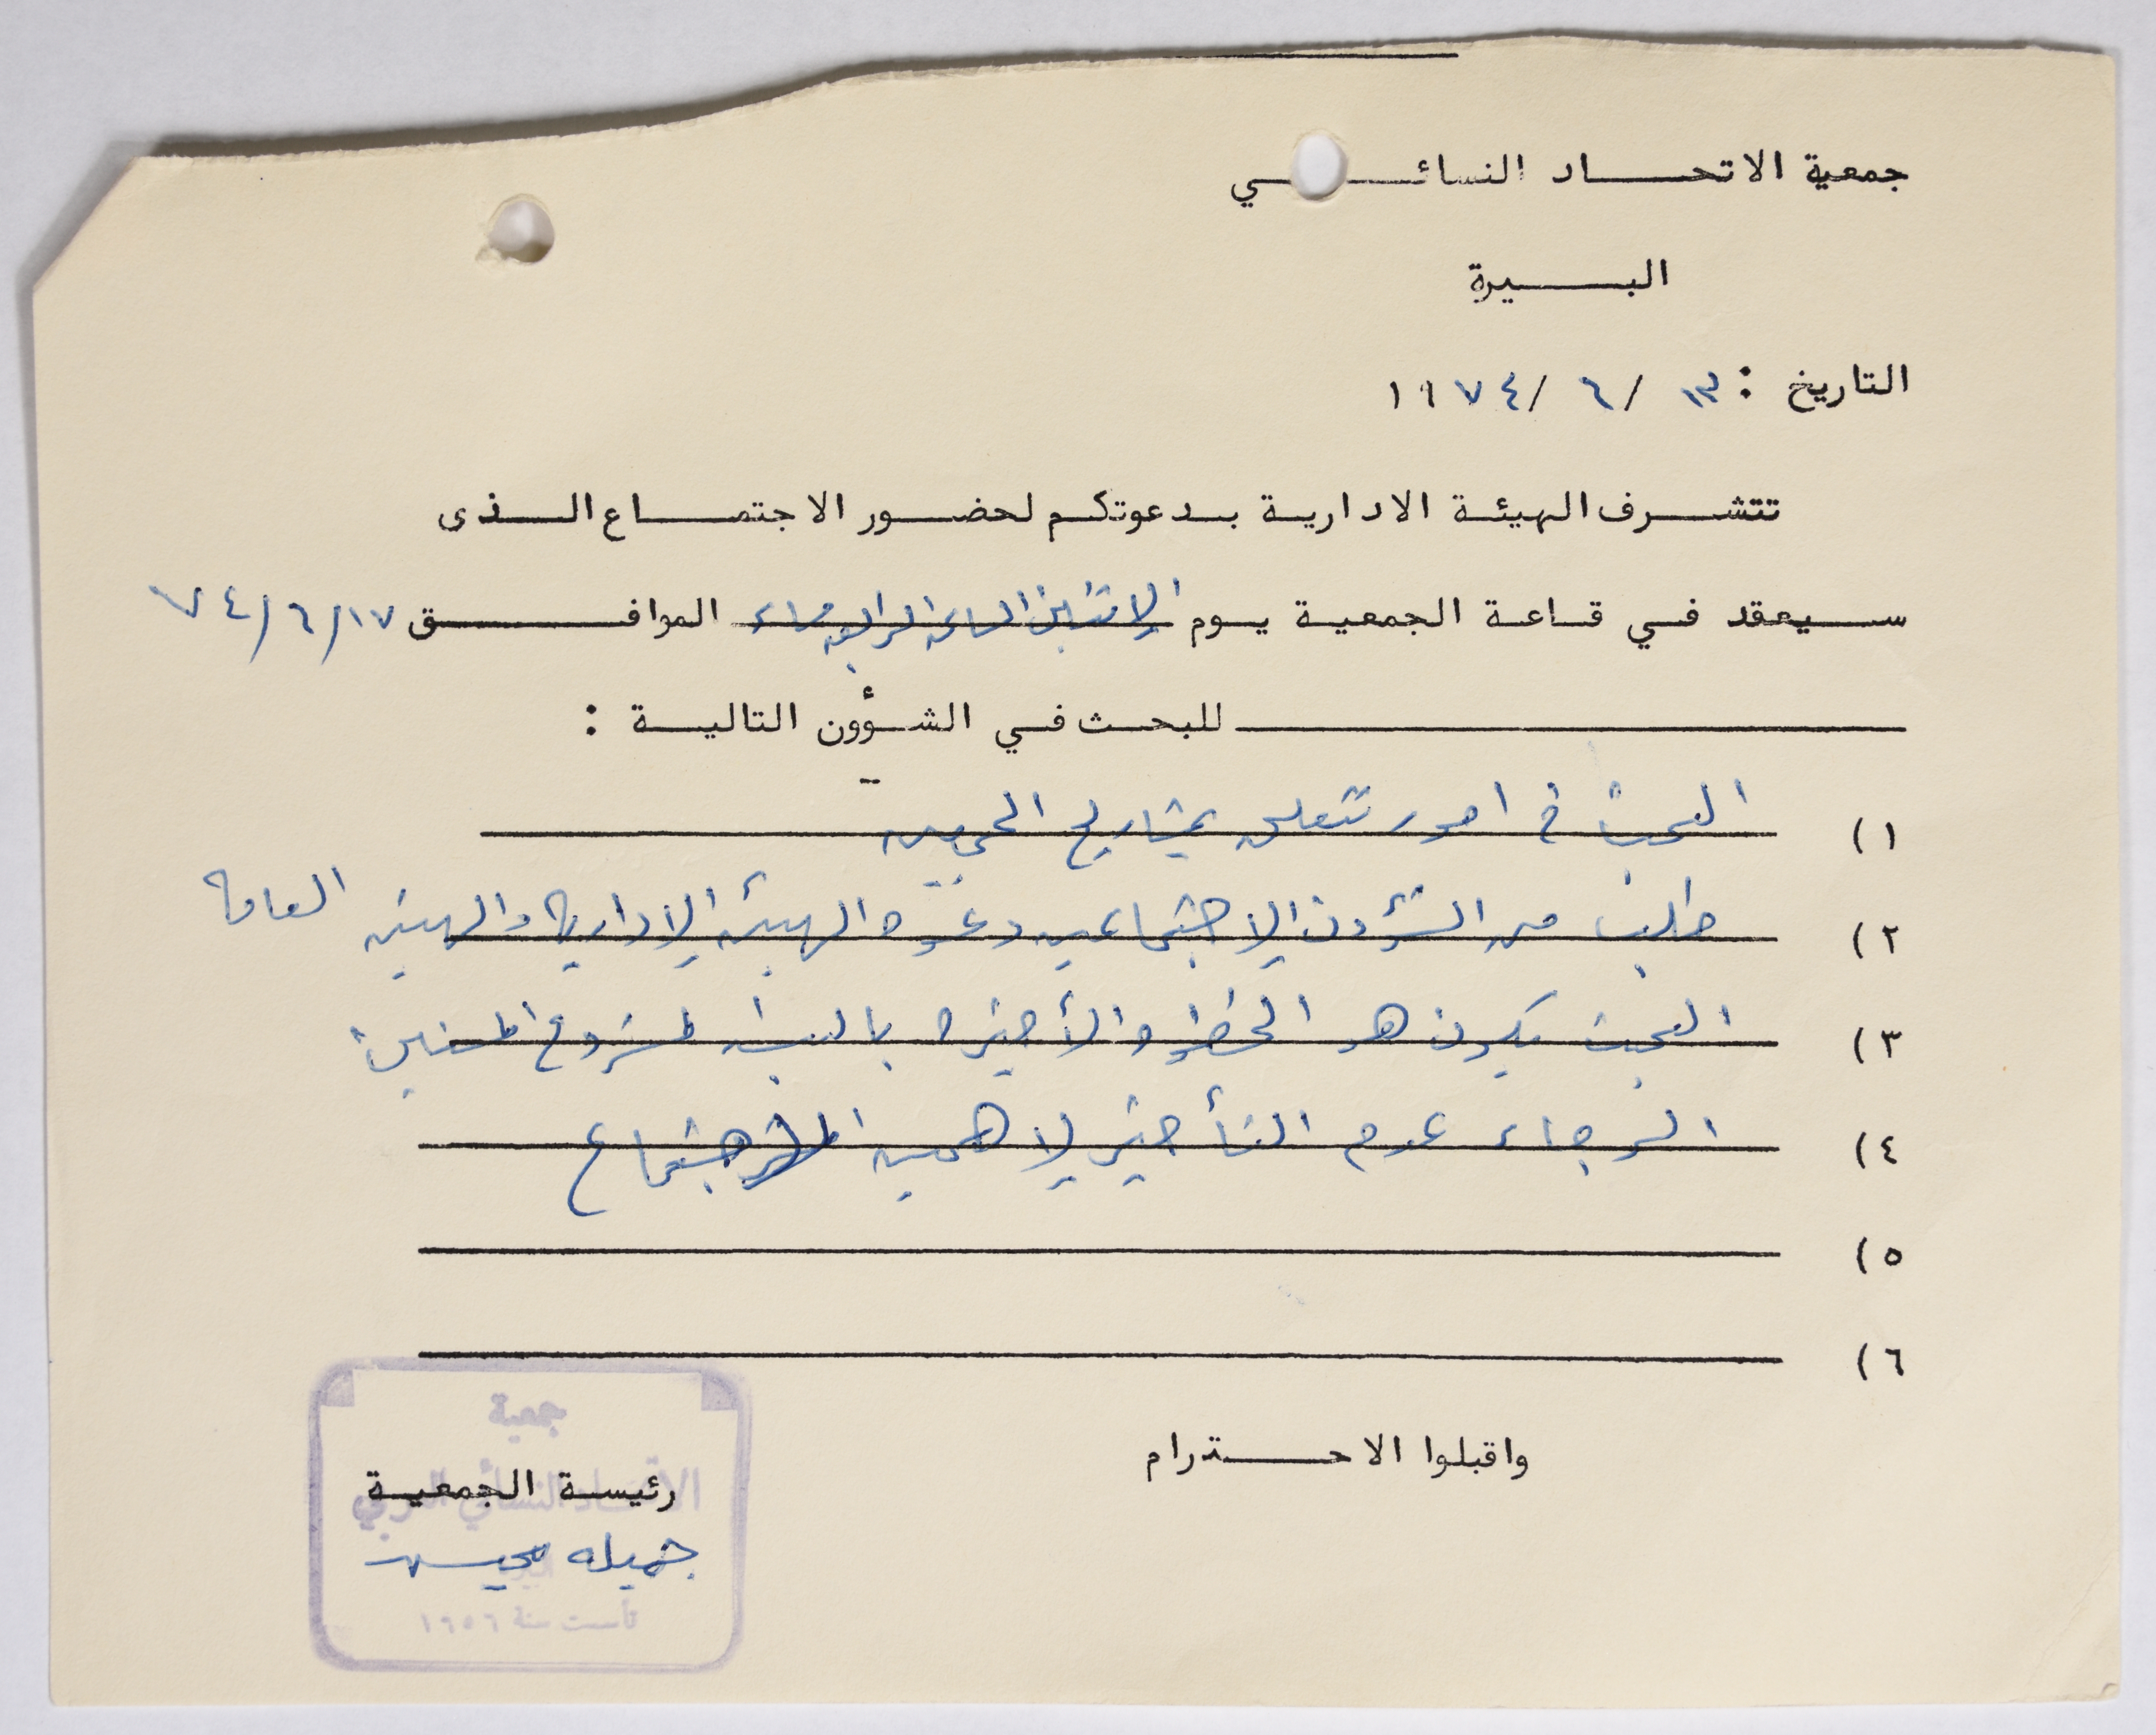 جمعية الاتحاد النسائي
البيرة
التاريخ : ١٣ / ٦ / ١٩٧٤
تتشرف الهيئة الادارية بدعوتكم لحضور الاجتماع الذى
سيعقد في قاعة الجمعية يوم الاثنين الساعة الرابعة مساء الموافق ٧٤/٦/١٧
للبحث في الشؤون التالية :
١) البحث في امور تتعلق بمشاريع الجمعيه
٢) طلب من الشؤون الإجتماعيه دعوه الهيئه الإدارية والهيئه العامة
٣) البحث يكون هو الخطوه الأخيره بالنسبه لمشروع المسنين
٤) الرجاء عدم التأخير لإهميه الإجتماع
٥)
٦)
واقبلوا الاحترام
رئيسة الجمعية
جميله
جمعية
الاتحاد النسائي العربي
البيرة
تأسست سنة ١٩٥٦